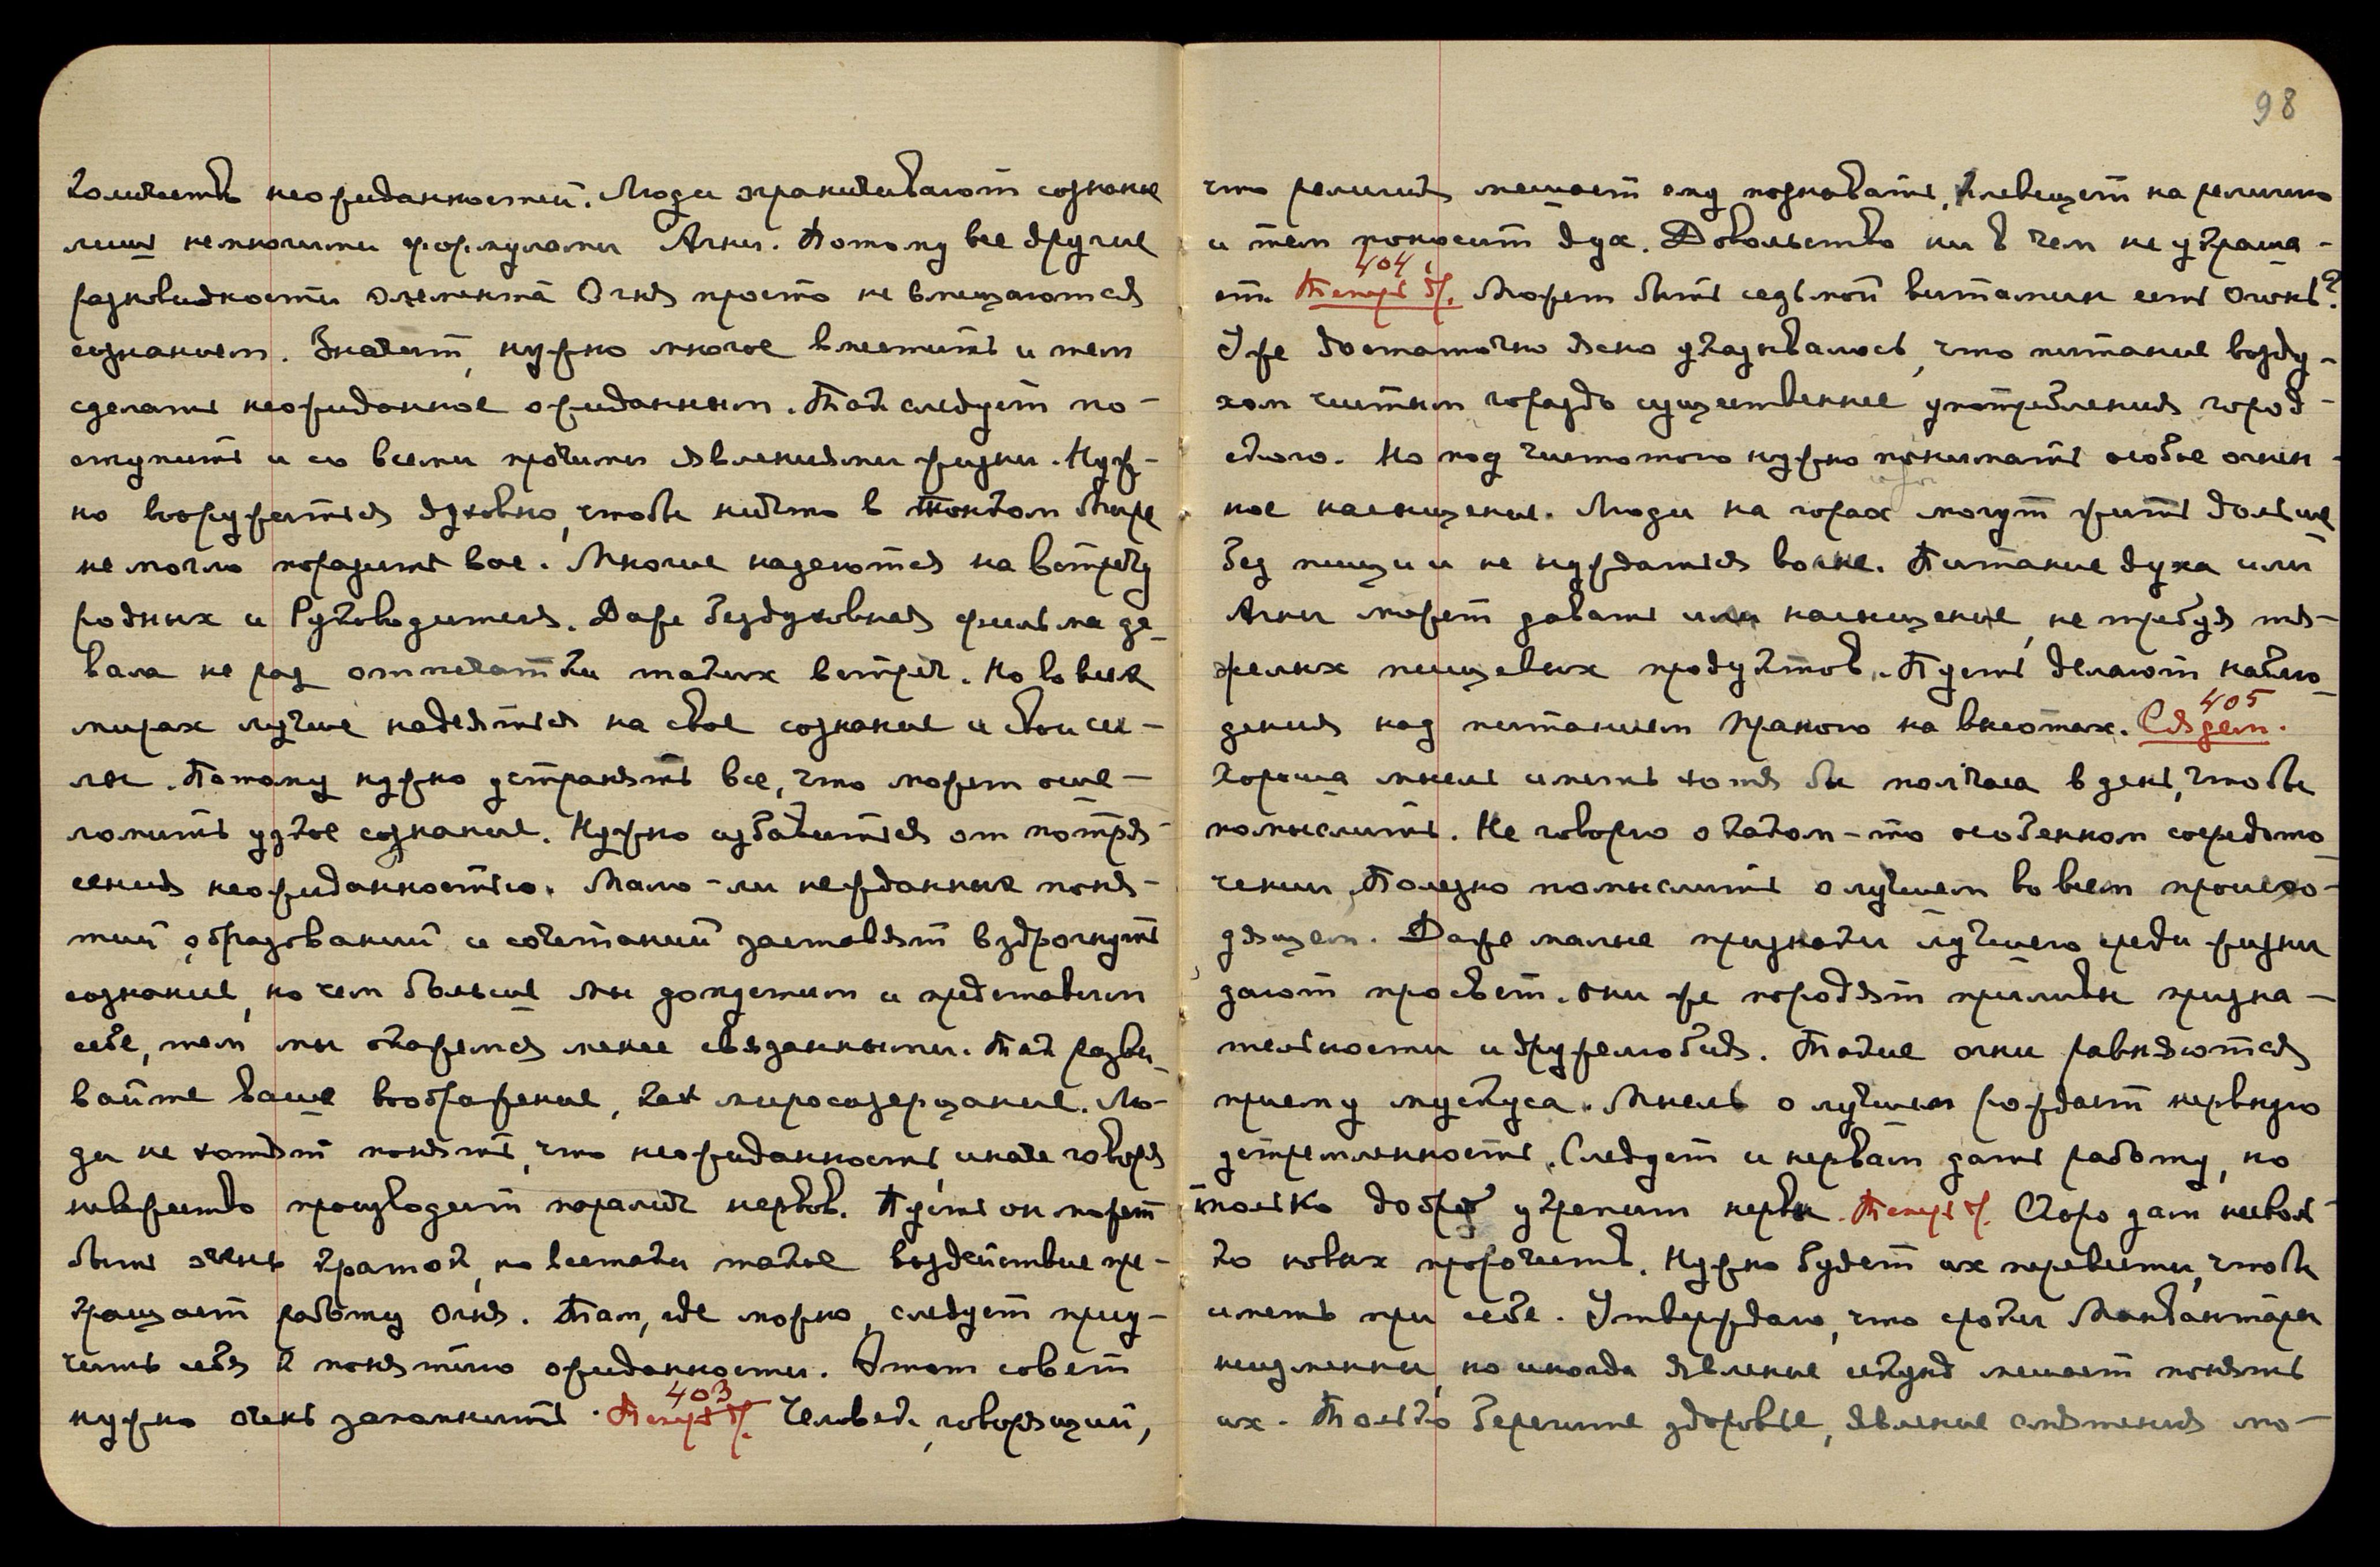 количеств неожиданностей. Люди ограничивают сознание
лишь немногими формулами Агни. Потому все другие
разновидности элемента Огня просто не вмещаются
сознанием. Значит, нужно многое вместить и тем
сделать неожиданное ожиданным. Так следует по-
ступить и со всеми прочими явлениями жизни. Нуж-
но вооружиться духовно, чтобы ничто в Тонком Мире
не могло поразить вас. Многие надеются на встречу
родных и Руководителя. Даже бездуховная фильма да-
вала не раз отпечатки таких встреч. Но во всех
мирах лучше надеяться на свое сознание и свои си-
лы. Потому нужно устранять все, что может оше-
ломить узкое сознание. Нужно избавиться от потря-
сения неожиданностью. Мало-ли нежданных поня-
тий, образований и сочетаний заставят вздрогнуть
сознание, но чем больше мы допустим и представим
себе, тем мы окажемся менее связанными. Так разви-
вайте ваше воображение, как миросозерцание. Лю-
ди не хотят понять, что неожиданность, иначе говоря
невежество производит паралич нервов. Пусть он может
быть очень краток, но всетаки такое воздействие пре-
кращает работу Огня. Там, где можно, следует приу-
чить себя к понятию ожиданности. Этот совет
нужно очень запомнить. 403 Теперь др. Человек, говорящий,
98
что религия мешает ему познавать, клевещет на религию
и тем поносит дух. Довольство ни в чем не украша-
ет. 404 Теперь др. Может быть седьмой витамин есть огонь?
Уже достаточно ясно указывалось, что питание возду-
хом чистым гораздо существеннее употребления город-
ского. Но под чистотою нужно понимать особое огнен-
ное насыщение. Люди на горах могут жить дольше
без пищи и не нуждаться во сне. Питание духа или
Агни может давать им насыщение, не требуя тя-
желых пищевых продуктов. Пусть делают наблю-
дения над питанием Праною на высотах. 405 Сядем.
Хороша мысль иметь хотя бы полчаса в день, чтобы
помыслить. Не говорю о каком-то особенном сосредото
чении. Полезно помыслить о лучшем во всем происхо-
дящем. Даже малые признаки лучшего среди жизни
дают просвет. Они же породят приливы призна-
тельности и дружелюбия. Такие огни равняются
приему мускуса. Мысль о лучшем рождает нервную
устремленность. Следует и нервам дать работу, но
только добро укрепит нервы. Теперь др. Скоро дам несколь-
ко новых пророчеств. Нужно будет их перевести, чтобы
иметь при себе. Утверждаю, что сроки Манвантары
неизменны, но иногда явление секунд мешает понять
их. Только берегите здоровье, явление смятения мо-